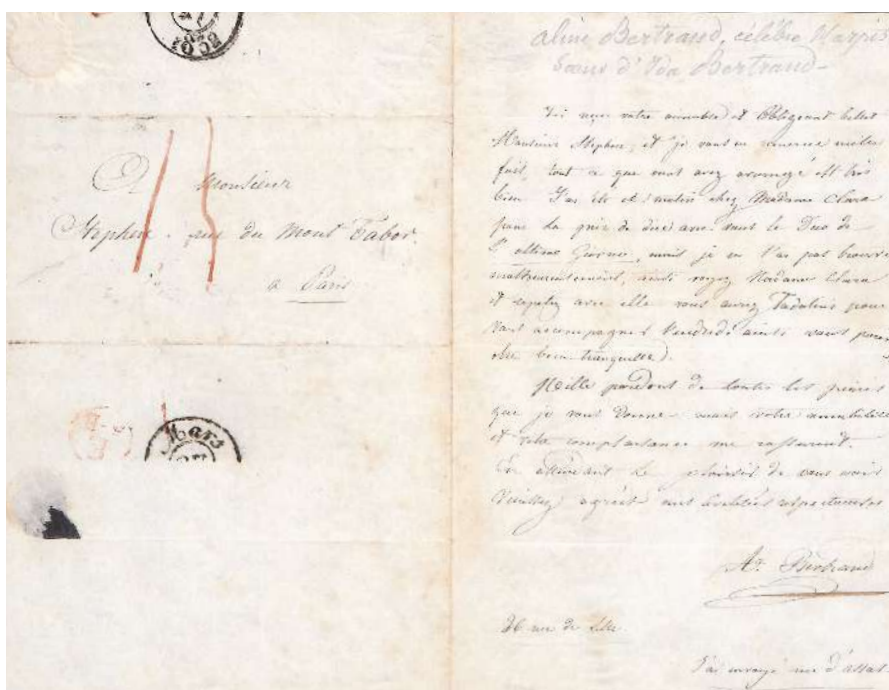 A Monsieur
Stephen. rue du Mont Tabor.
a Paris
Mars
Aline Bertrand, célèbre Harpis
Soeur d'Ida Bertrand
J'ai reçu votre aimable et Obligeant billet
Monsieur Stephen, et je vous en remercie mille
fois, tout ce que vous avez arrangé est très
bien J'ai été ce matin chez Madame Clara
pour la prier de dire avec vous le Duo de
L'ultimo Giorno, mais je ne l'ai pas trouvée
malheureusement, ainsi voyez Madame Clara
et repetez avec elle vous aurez Tadolini pour
vous accompagner Vendredi ainsi vous pouvez
être bien tranquille.
Mille pardons de toutes les peines
que je vous donne mais votre amabilité
et votre complaisance me rassurent.
En attendant le plaisir de vous voir
Veuillez agréer mes civilités respectueuses
Ae. Bertrand
36 rue de Lille
J'ai envoyé rue d'